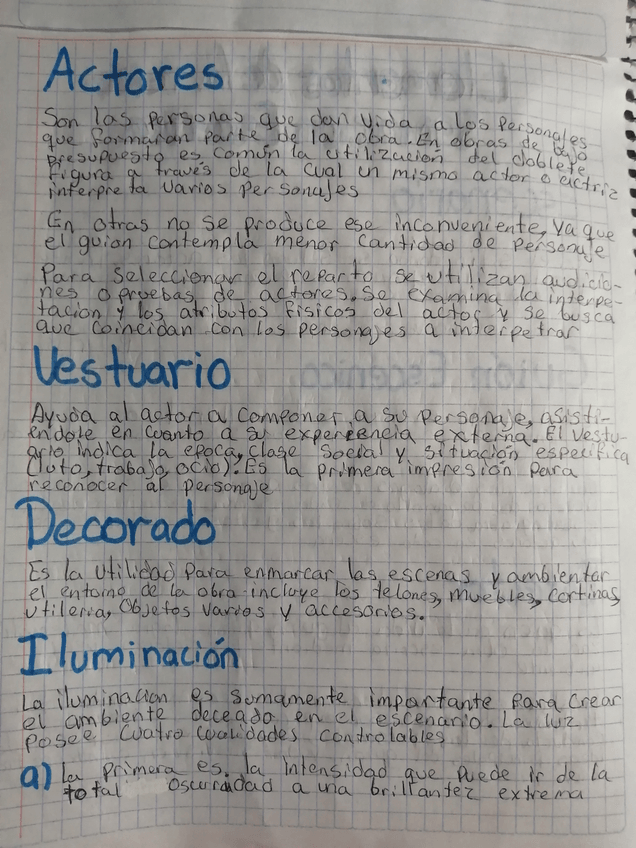 Actores
Son las personas que dan vida a los personajes
que formaran parte de la obra. En obras de bajo
presupuesto es común la utilización del doblete
figura a través de la cual un mismo actor o actriz
interpreta varios personajes
En otras no se produce ese inconveniente, ya que
el guion contempla menor cantidad de personaje
Para seleccionar el reparto se utilizan audicio-
nes o pruebas de actores. Se examina la interpe-
tacion y los atributos físicos del actor y se busca
que coincidan con los personajes a interpetrar
Vestuario
Ayuda al actor a componer a su personaje, asisti-
éndole en cuanto a su experiencia externa. El vestu-
ario indica la epoca, clase social y situación especifica
(luto, trabajo, ocio). Es la primera impresión para
reconocer al personaje
Decorado
Es la utilidad para enmarcar las escenas y ambientar
el entorno de la obra incluye los telones, muebles, cortinas,
utileria, objetos varios y accesorios.
Iluminación
La iluminacion es sumamente importante para crear
el ambiente deceado en el escenario. La luz
posee cuatro cualidades controlables
a) La primera es. la intensidad que puede ir de la
total oscuridad a una brillantez extrema